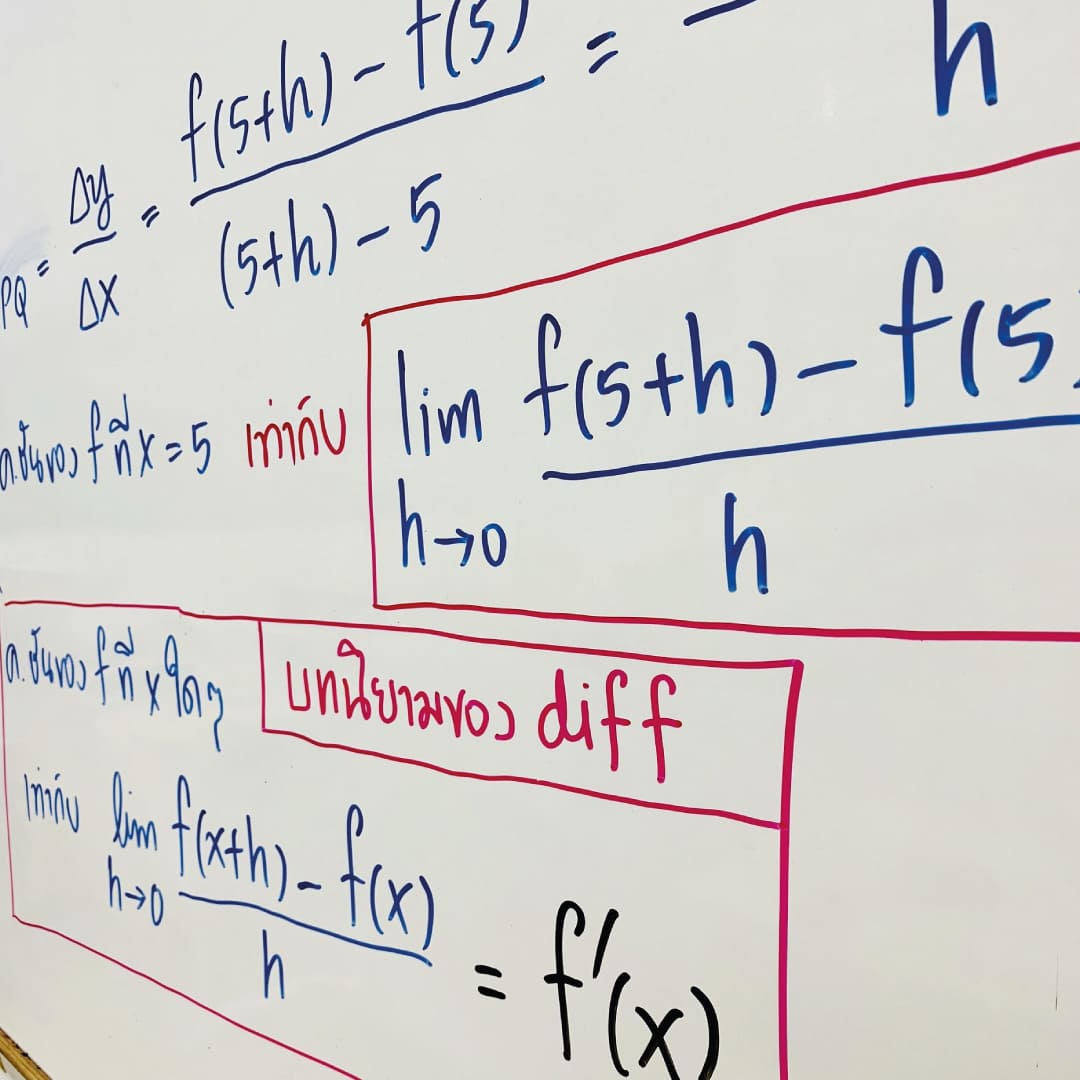 PQ = Δy/Δx = f(5+h) - f(5) / (5+h) - 5 = h
ค.ชันของ f ที่ x = 5 เท่ากับ lim h→0 f(5+h) - f(5) / h
ค.ชันของ f ที่ x ใดๆ
บทนิยามของ diff
เท่ากับ lim h→0 f(x+h) - f(x) / h = f'(x)